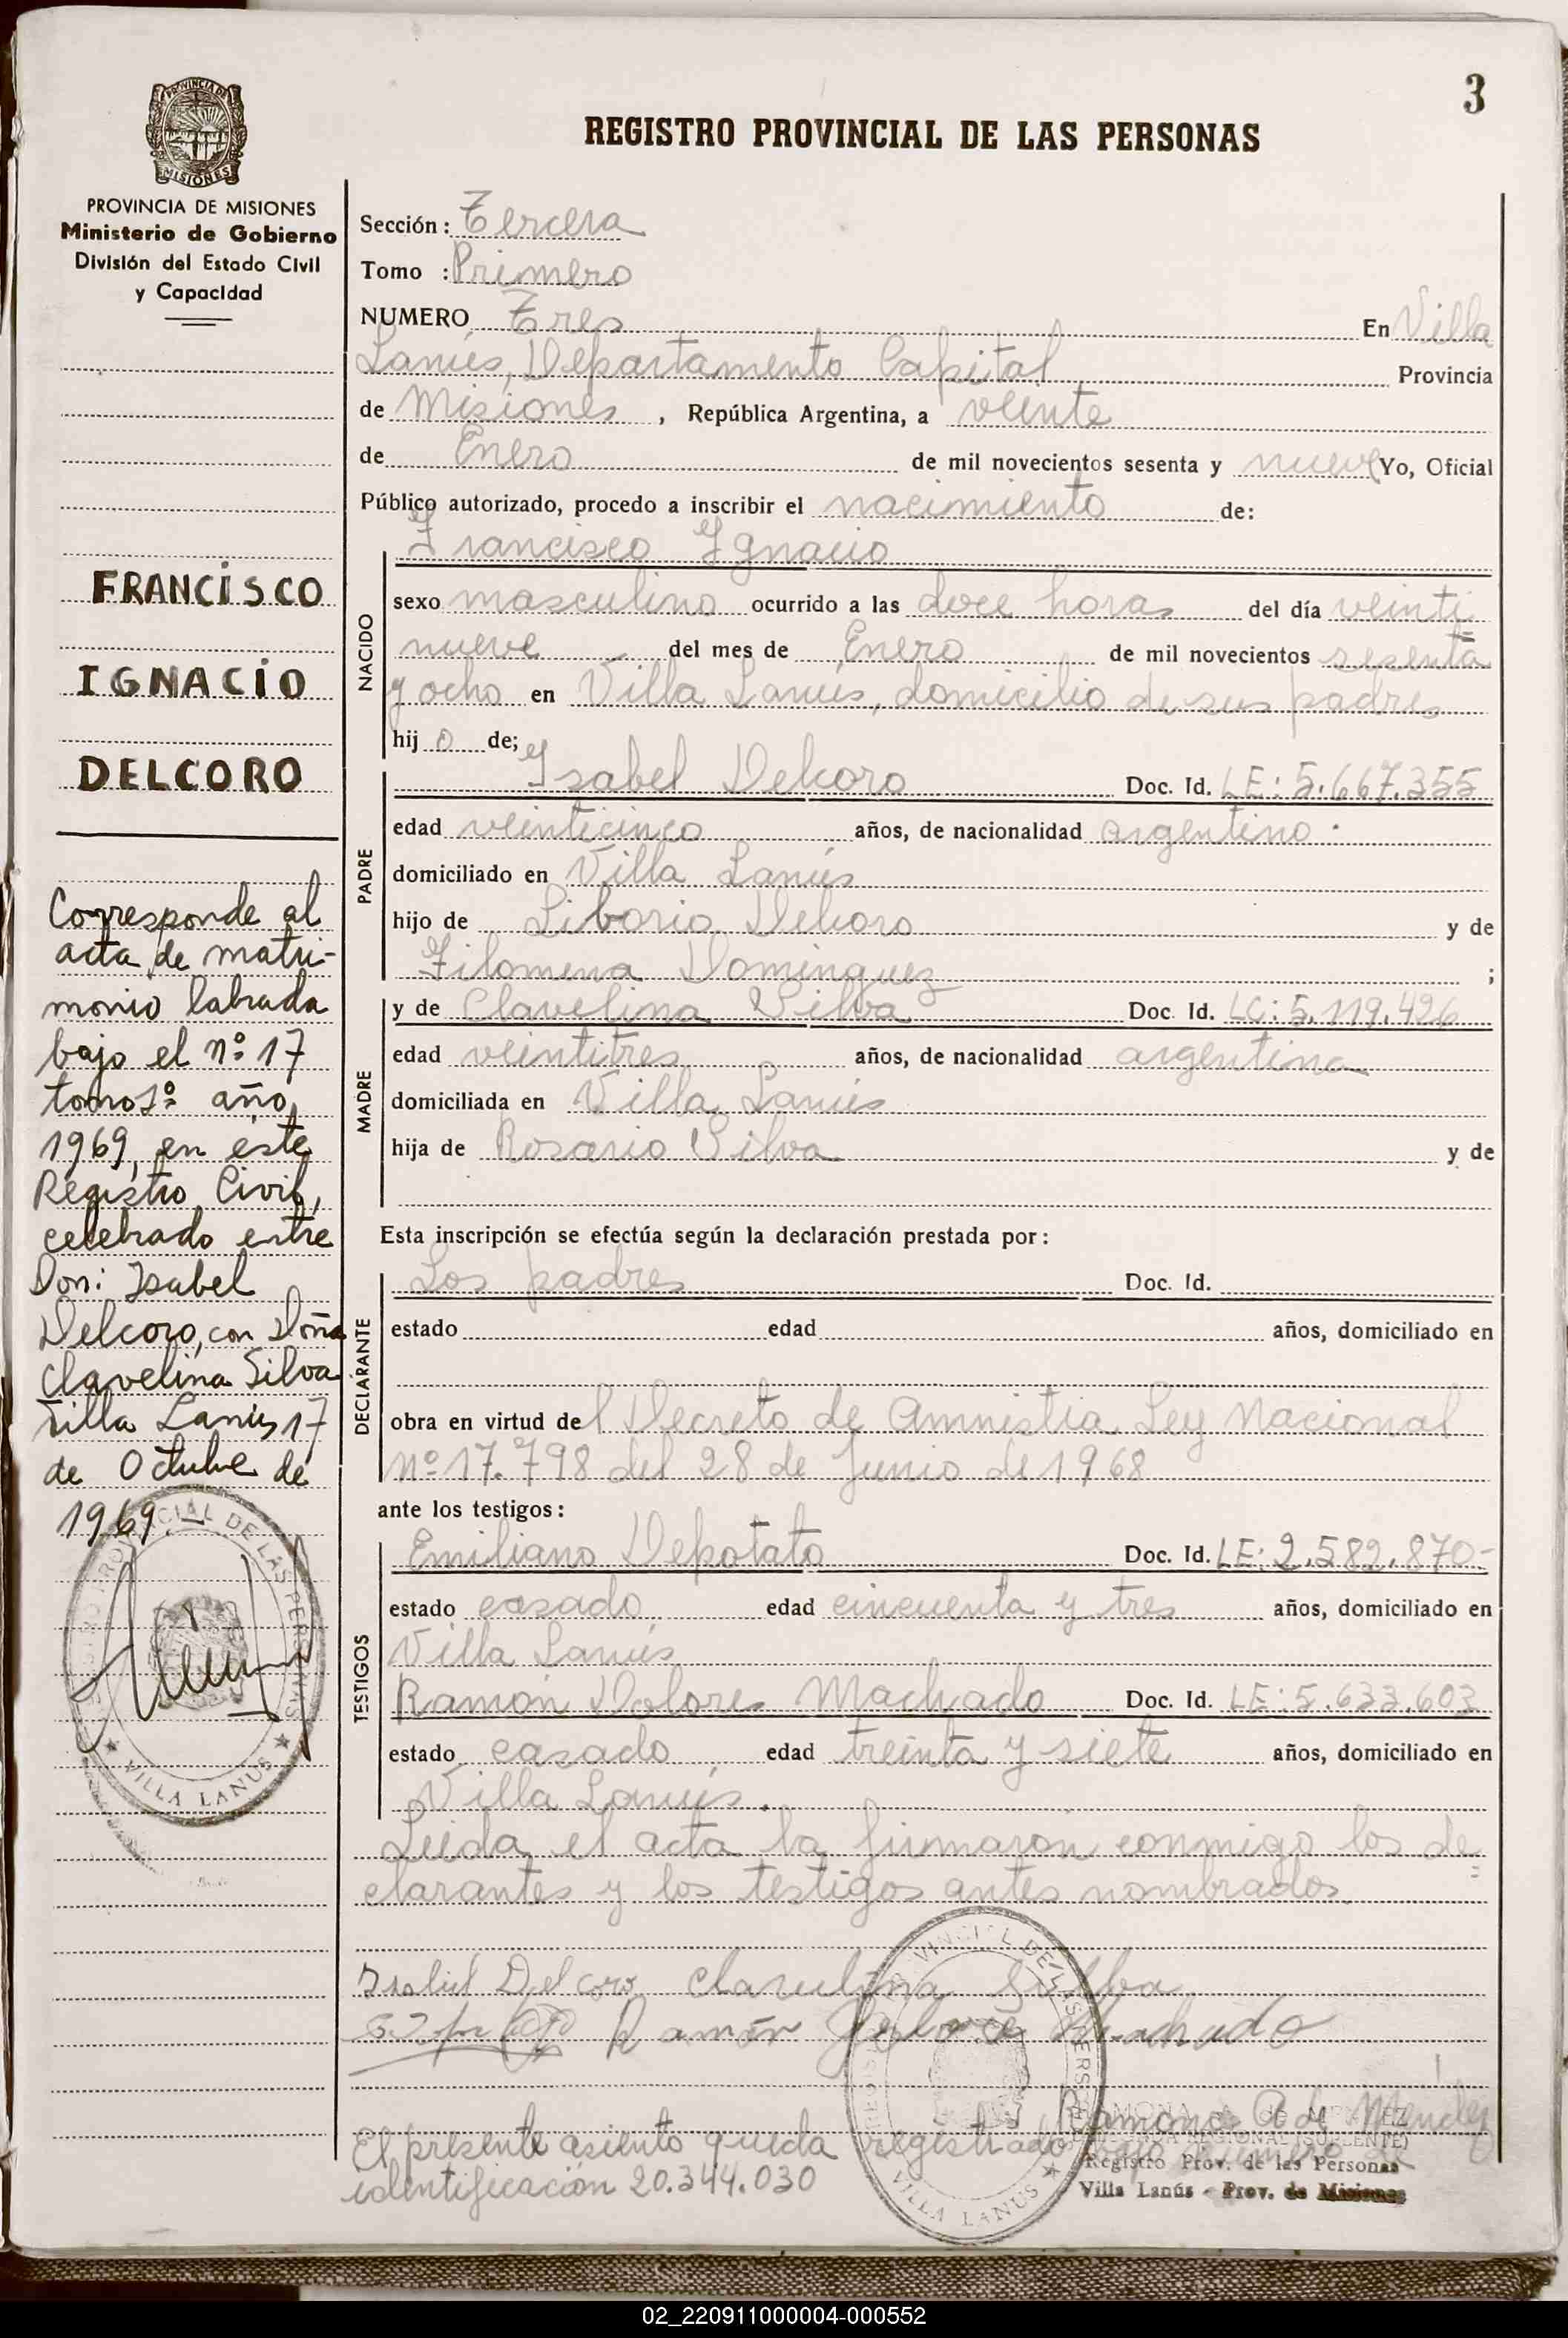 3
REGISTRO PROVINCIAL DE LAS PERSONAS
PROVINCIA DE MISIONES
PROVINCIA DE MISIONES
Ministerio de Gobierno
División del Estado Civil
y Capacidad
FRANCISCO
IGNACIO
DELCORO
Corresponde al
acta de matri-
monio labrada
bajo el nº 17
tomo 1º año
1969, en este
Registro Civil,
celebrado entre
Don: Isabel
Delcoro, con Doña
Clavelina Silva
Villa Lanús 17
de Octubre de
1969.
VILLA LANUS
Sección: Tercera
Tomo : Primero
NUMERO Tres En Villa
Lanús, Departamento Capital Provincia
de Misiones, República Argentina, a veinte
de Enero de mil novecientos sesenta y nueve Yo, Oficial
Público autorizado, procedo a inscribir el nacimiento de:
NACIDO
Francisco Ignacio
sexo masculino ocurrido a las doce horas del día veinti
nueve del mes de Enero de mil novecientos sesenta
y ocho en Villa Lanús, domicilio de sus padres
hijo de;
PADRE
Isabel Delcoro Doc. Id. LE: 5.667.355
edad veinticinco años, de nacionalidad argentino.
domiciliado en Villa Lanús
hijo de Liborio Delcoro y de
Filomena Dominguez ;
MADRE
y de Clavelina Silva Doc. Id. LC: 5.119.426
edad veintitres años, de nacionalidad argentina
domiciliada en Villa Lanús
hija de Rosario Silva y de
Esta inscripción se efectúa según la declaración prestada por:
DECLARANTE
Los padres Doc. Id.
estado edad años, domiciliado en
obra en virtud del Decreto de Amnistia Ley Nacional
nº 17.798 del 28 de Junio de 1968
ante los testigos:
TESTIGOS
Emiliano Depotato Doc. Id. LE: 2.582.870-
estado casado edad cincuenta y tres años, domiciliado en
Villa Lanús
Ramón Dolores Machado Doc. Id. LE: 5.633.603
estado casado edad treinta y siete años, domiciliado en
Villa Lanús.
Leida el acta la firmaron conmigo los de=
clarantes y los testigos antes nombrados
Isabel Delcoro Clavelina Silba
Ramón Dolores Machado
Ramona A de Mendez
El presente asiento queda registrado bajo número de
identificación 20.344.030
Registro Prov. de las Personas
Villa Lanús - Prov. de Misiones
VILLA LANUS
02_220911000004-000552